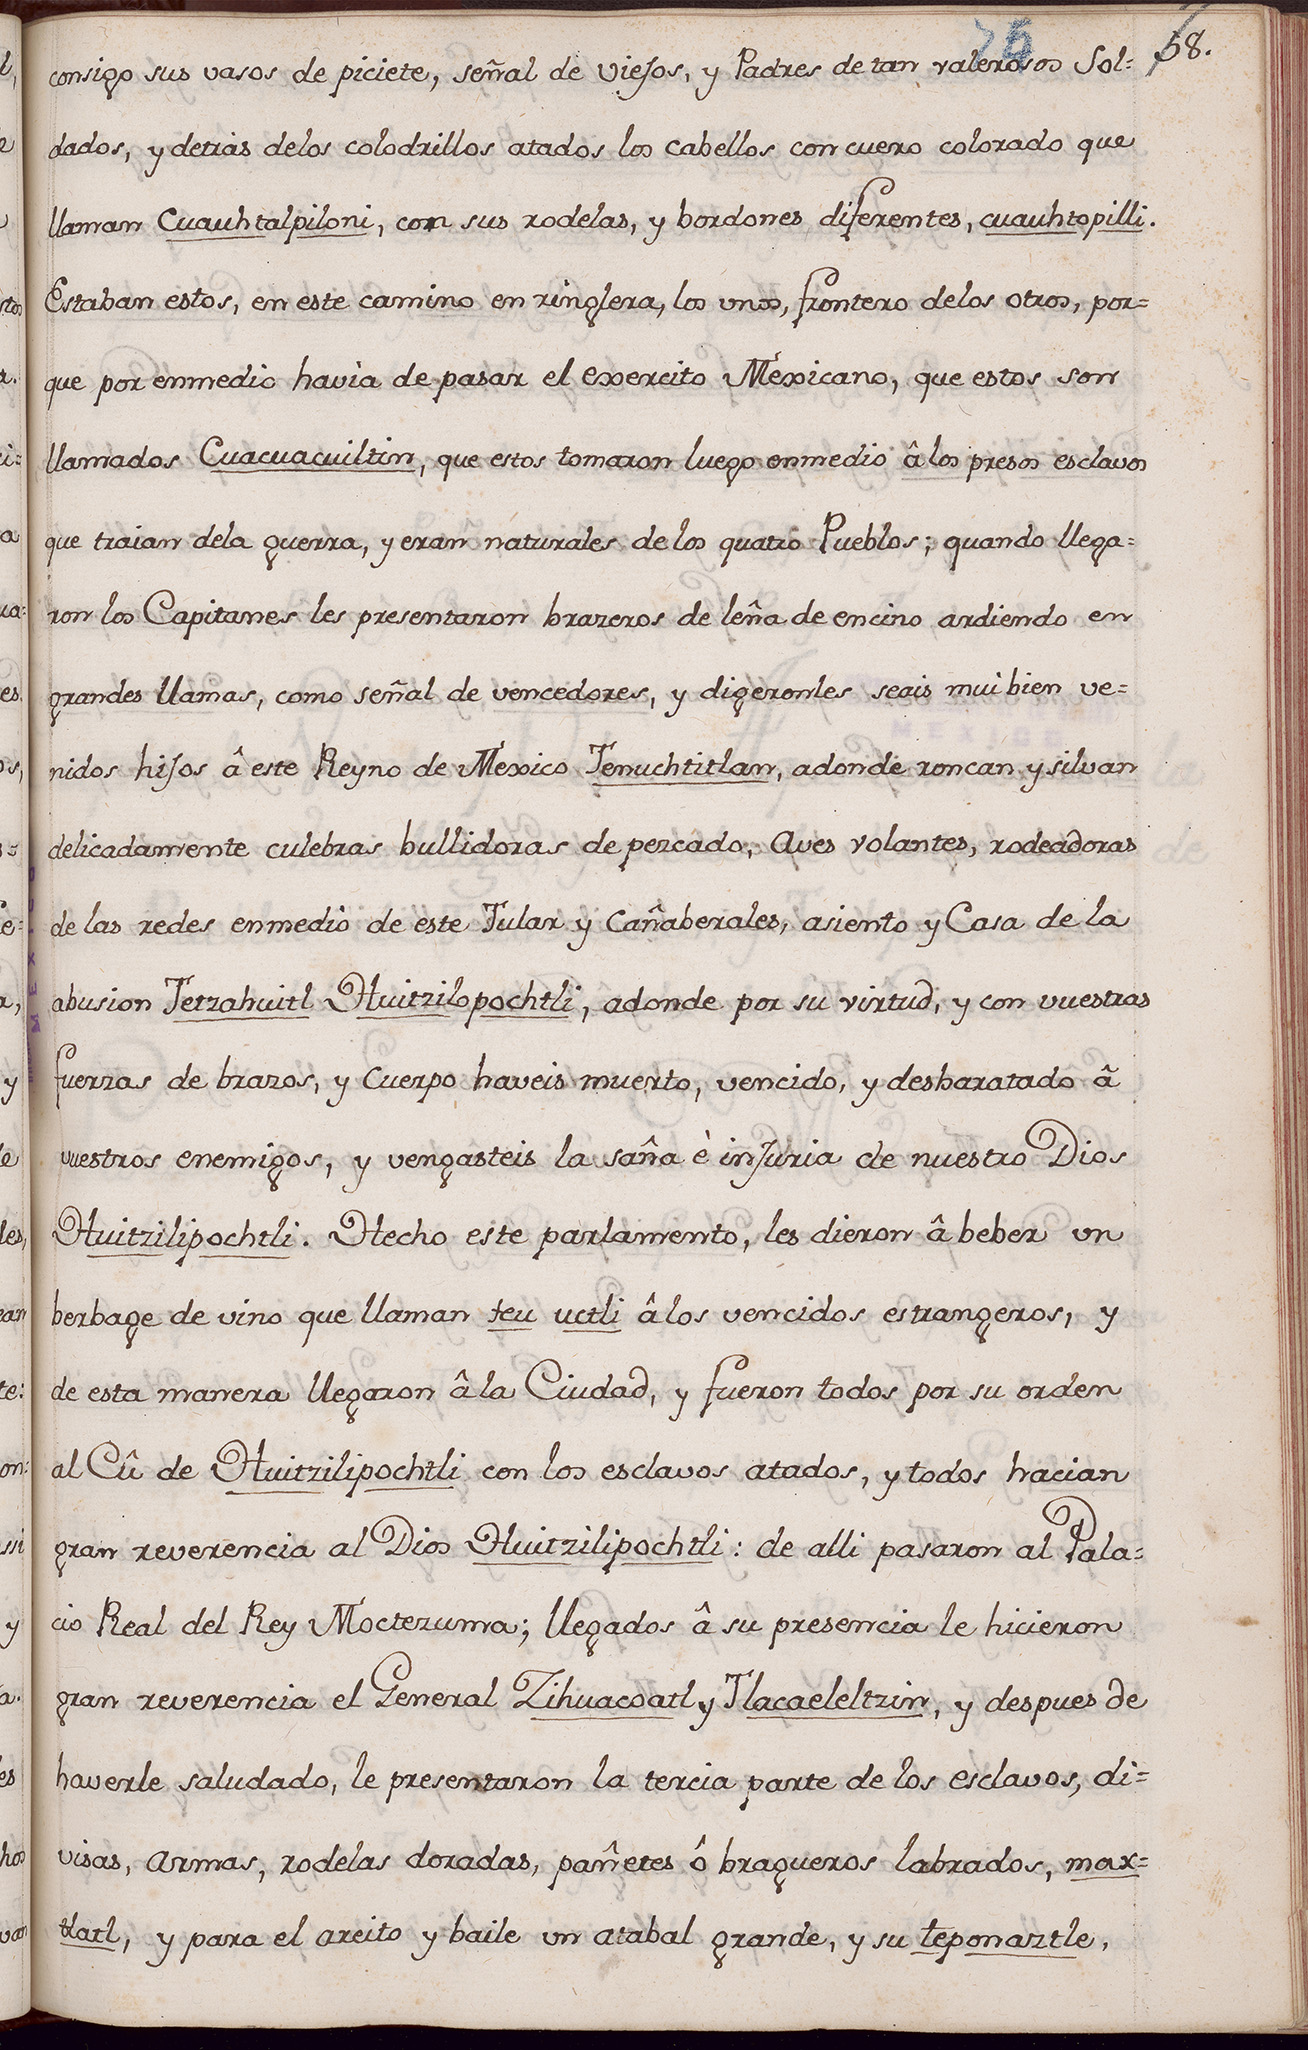 58.
consigo sus vasos de piciete, señal de viejos, y Padres de tan valerosos Sol=
dados, y detràs delos colodrillos atados los cabellos con cuero colorado que
llaman Cuauhtalpiloni, con sus rodelas, y bordones diferentes, cuauhtopilli.
Estaban estos, en este camino en ringlera, los unos, frontero delos otros, por=
que por enmedio havia de pasar el exercito Mexicano, que estos son
llamados Cuacuacuiltin, que estos tomaron luego enmedio â los presos esclavos
que traian dela guerra, y eran naturales de los quatro Pueblos; quando llega=
ron los Capitanes les presentaron brazeros de leña de encino ardiendo en
grandes llamas, como señal de vencedores, y digeronles seais mui bien ve=
nidos hijos â este Reyno de Mexico Tenuchtitlan, adonde roncan y silvan
delicadamente culebras bullidoras de pezcado, Aves volantes, rodeadoras
de las redes enmedio de este Tular y Cañaberales, asiento y Casa de la
abusion Tetzahuitl Huitzilopochtli, adonde por su virtud, y con vuestras
fuerzas de brazos, y Cuerpo haveis muerto, vencido, y desbaratado â
vuestros enemigos, y vengasteis la saña è injuria de nuestro Dios
Huitzilipochtli. Hecho este parlamento, les dieron â beber un
berbage de vino que llaman teu uctli â los vencidos estrangeros, y
de esta manera llegaron â la Ciudad, y fueron todos por su orden
al Cû de Huitzilipochtli con los esclavos atados, y todos hacian
gran reverencia al Dios Huitzilipochtli: de alli pasaron al Pala=
cio Real del Rey Moctezuma; llegados â su presencia le hicieron
gran reverencia el General Zihuacoatl y Tlacaeleltzin, y despues de
haverle saludado, le presentaron la tercia parte de los esclavos, di=
visas, armas, rodelas doradas, pañetes ô bragueros labrados, max=
tlatl, y para el areito y baile un atabal grande, y su teponaztle,